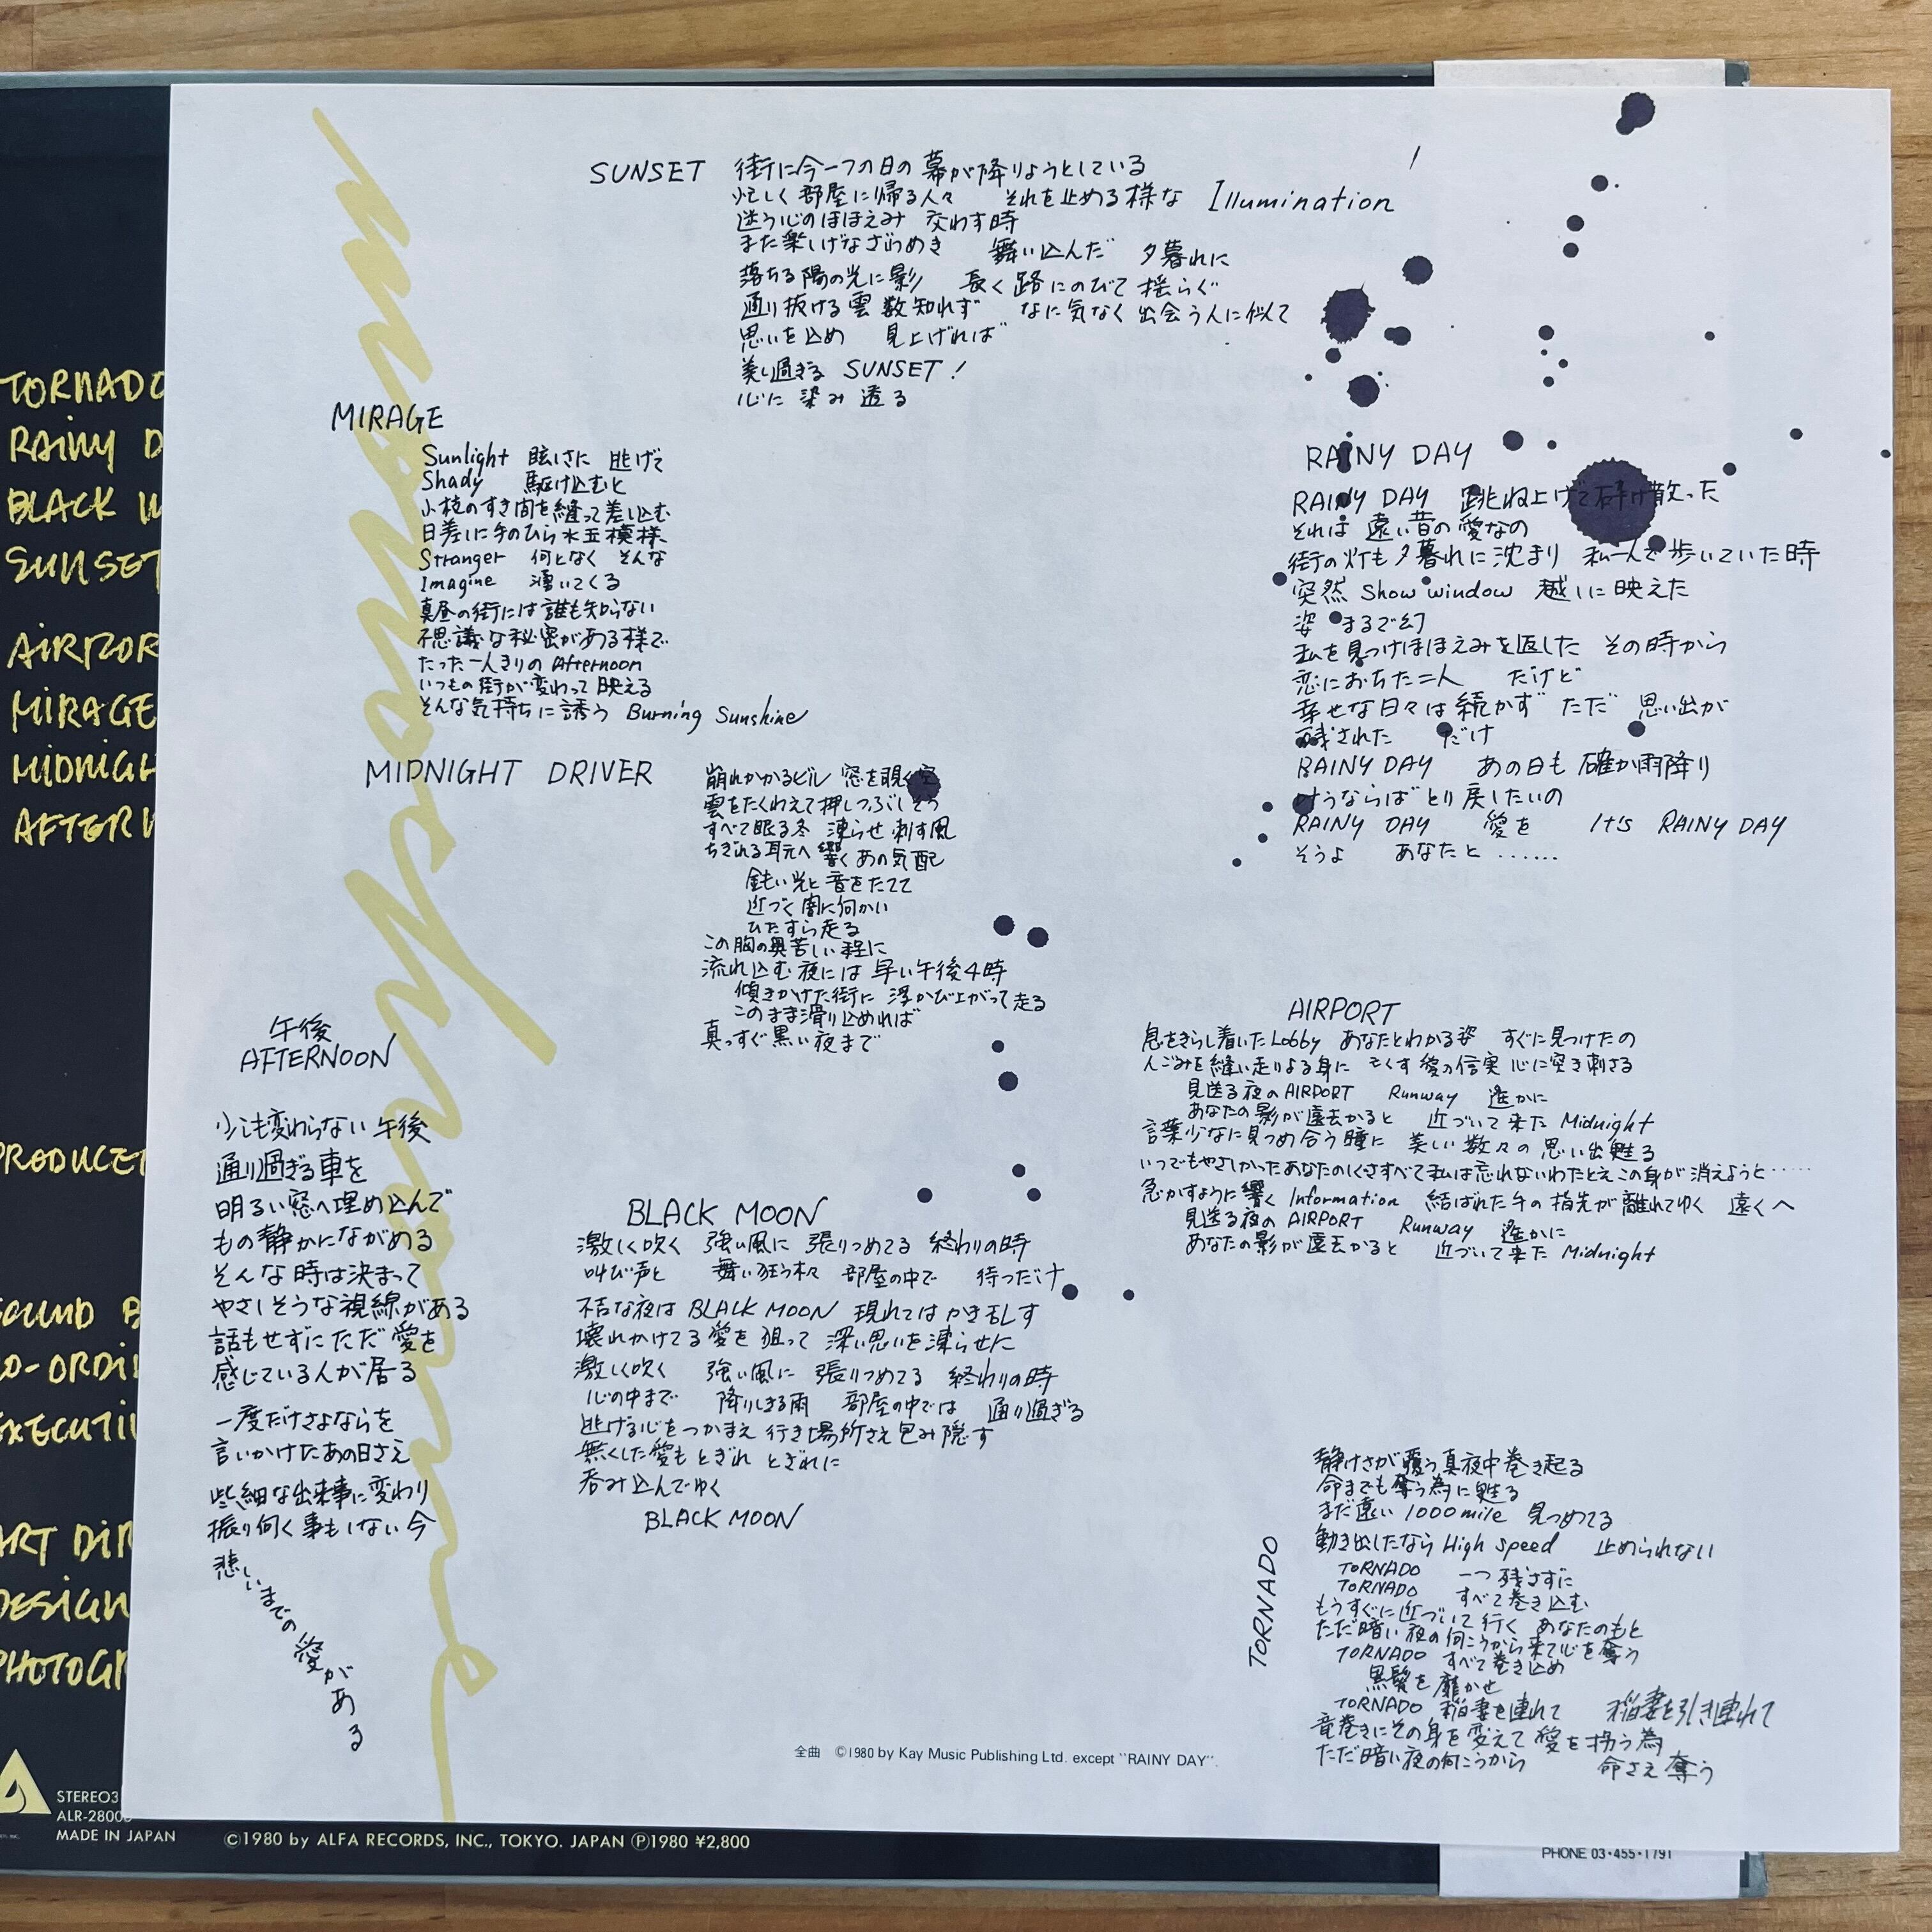 SUNSET 街に今一つの日の幕が降りようとしている
忙しく部屋に帰る人々 それを止める様な Illumination
迷う心のほほえみ 交わす時
また楽しげなざわめき 舞い込んだ 夕暮れに
落ちる陽の光に影 長く路にのびて揺らぐ
通り抜ける雲 数知れず なに気なく出会う人に似て
思いを込め 見上げれば
美し過ぎる SUNSET!
心に 染み 透る
MIRAGE
Sunlight 眩しさに 逃げて
Shady 駆け込むと
小枝のすき間を縫って差し込む
日差しに手のひら水玉模様
Stranger 何となく そんな
Imagine 湧いてくる
真昼の街には誰も知らない
不思議な秘密がある様で
たった一人きりの Afternoon
いつもの街が変わって映える
そんな気持ちに誘う Burning Sunshine
RAINY DAY
RAINY DAY 跳ね上げて砕け散った
それは 遠い昔の愛なの
街の灯も夕暮れに沈まり 私一人で歩いていた時
突然 Show window 越しに映えた
姿 まるで幻
私を見つけほほえみを返した その時から
恋におちた二人 だけど
幸せな日々は続かず ただ 思い出が
残された だけ
RAINY DAY あの日も 確か雨降り
叶うならば とり戻したいの
RAINY DAY 愛を It's RAINY DAY
そうよ あなたと ......
MIDNIGHT DRIVER
崩れかかるビル 窓を覗く空
雲をたくわえて押しつぶしそう
すべて眠る冬 凍らせ刺す風
ちぎれる耳元へ響くあの気配
鈍い光と音をたてて
近づく闇に向かい
ひたすら走る
この胸の奥苦しい程に
流れ込む夜には 早い午後4時
傾きかけた街に 浮かび上がって走る
このまま滑り込めれば
真っすぐ黒い夜まで
AIRPORT
息をきらし着いたLobby あなたとわかる姿 すぐに見つけたの
人ごみを縫い走りよる身に もくす愛の信実 心に突き刺さる
見送る夜のAIRPORT Runway 遥かに
あなたの影が遠去かると 近づいて来た Midnight
言葉少なに見つめ合う瞳に 美しい数々の思い出甦る
いつでもやさしかったあなたのしぐさすべて私は忘れないわたとえこの身が消えようと……
急かすように響く Information 結ばれた手の指先が離れてゆく 遠くへ
見送る夜の AIRPORT Runway 遥かに
あなたの影が遠去かると 近づいて来た Midnight
午後
AFTERNOON
少しも変わらない午後
通り過ぎる車を
明るい窓へ埋め込んで
もの静かにながめる
そんな時は決まって
やさしそうな視線がある
話もせずにただ愛を
感じている人が居る
一度だけさよならを
言いかけたあの日さえ
些細な出来事に変わり
振り向く事もしない今
悲しいまでの愛がある
BLACK MOON
激しく吹く 強い風に 張りつめてる 終わりの時
叫び声と 舞い狂う木々 部屋の中で 待つだけ
不吉な夜は BLACK MOON 現れてはかき乱す
壊れかけてる愛を 狙って 深い思いを凍らせた
激しく吹く 強い風に 張りつめてる 終わりの時
心の中まで 降りしきる雨 部屋の中では 通り過ぎる
逃げる心をつかまえ 行き場所さえ包み隠す
無くした愛も とぎれ とぎれに
呑み込んでゆく
BLACK MOON
TORNADO
静けさが覆う真夜中巻き起る
命までも奪う為に甦る
まだ遠い 1000 mile 見つめてる
動き出したなら High speed 止められない
TORNADO 一つ残さずに
TORNADO すべて巻き込む
もうすぐに近づいて行く あなたのもと
ただ暗い夜の向こうから来て心を奪う
TORNADO すべて巻き込め
黒髪を靡かせ
TORNADO 稲妻を連れて 稲妻を引き連れて
竜巻きにその身を変えて 愛を拐う為
ただ暗い夜の向こうから 命さえ奪う
全曲 ©1980 by Kay Music Publishing Ltd. except "RAINY DAY".
TORNADO
RAINY D
BLACK
SUNSET
AIRPOR
MIRAGE
MIDNIGH
AFTER
PRODUCE
SOUND
CO-ORDI
EXECUTI
ART DIR
DESIGN
PHOTOGR
STEREO
ALR-2800
MADE IN JAPAN
©1980 by ALFA RECORDS, INC., TOKYO. JAPAN Ⓟ1980 ¥2,800
PHONE 03・455・1791